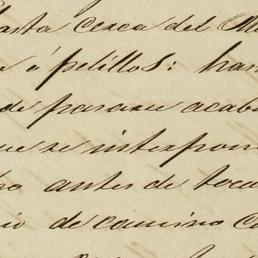 hasta cerca del M
a ó pelillos: han
de pasaru acab
ue se interpon
ho antes de toca
io de camino c